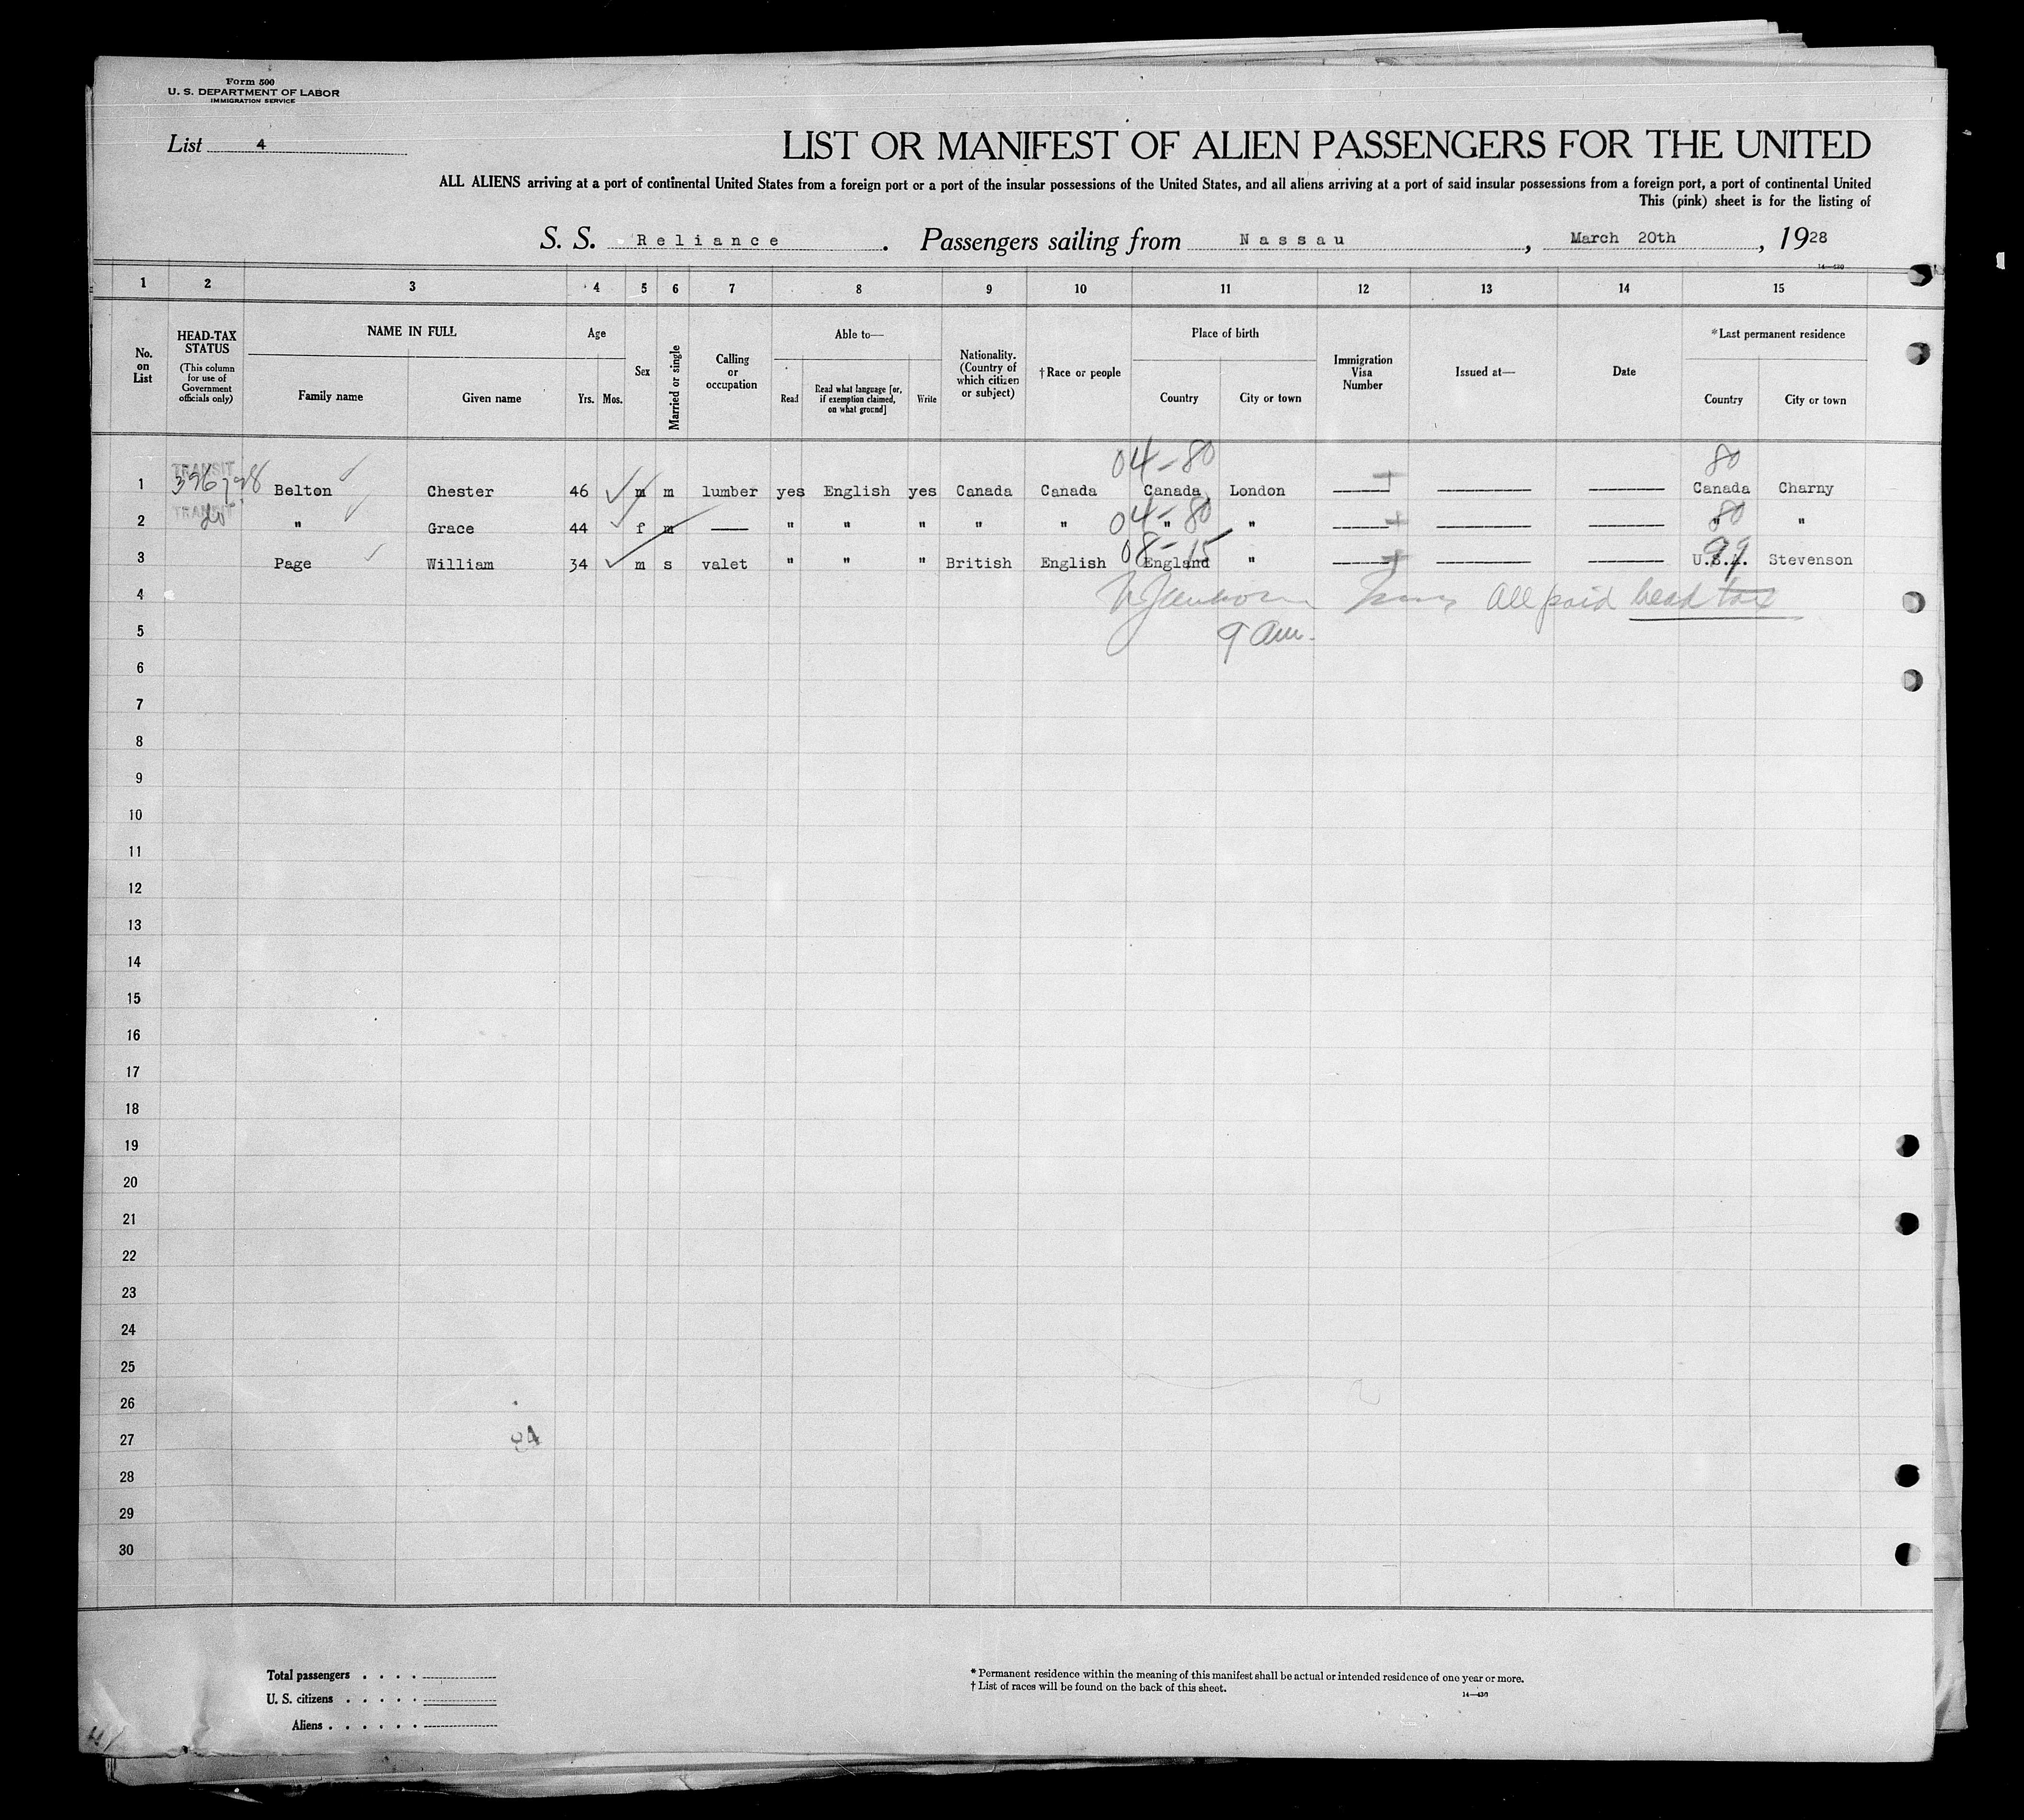 Form 500
U. S. DEPARTMENT OF LABOR
IMMIGRATION SERVICE
List 4
LIST OR MANIFEST OF ALIEN PASSENGERS FOR THE UNITED
ALL ALIENS arriving at a port of continental United States from a foreign port or a port of the insular possessions of the United States, and all aliens arriving at a port of said insular possessions from a foreign port, a port of continental United
This (pink) sheet is for the listing of
S. S. Reliance. Passengers sailing from Nassau, March 20th, 1928
14—430
1 2 3 4 5 6 7 8 9 10 11 12 13 14 15
No. on List
HEAD-TAX STATUS (This column for use of Government officials only)
NAME IN FULL
Family name Given name
Age
Yrs. Mos.
Sex
Married or single
Calling or occupation
Able to—
Read Read what language [or, if exemption claimed, on what ground] Write
Nationality. (Country of which citizen or subject)
†Race or people
Place of birth
Country City or town
Immigration Visa Number
Issued at—
Date
*Last permanent residence
Country City or town
04-80 80
TRANSIT
1 Belton Chester 46 m m lumber yes English yes Canada Canada Canada London Canada Charny
TRANSIT 04-80 80
2 " Grace 44 f m — " " " " " " " " "
08-15 99
3 Page William 34 m s valet " " " British English England " U.S.A. Stevenson
4 All paid head tax
5 9 am.
6
7
8
9
10
11
12
13
14
15
16
17
18
19
20
21
22
23
24
25
26
27
28
29
30
Total passengers . . . .
U. S. citizens . . . . .
Aliens . . . . . .
* Permanent residence within the meaning of this manifest shall be actual or intended residence of one year or more.
† List of races will be found on the back of this sheet.
14—430